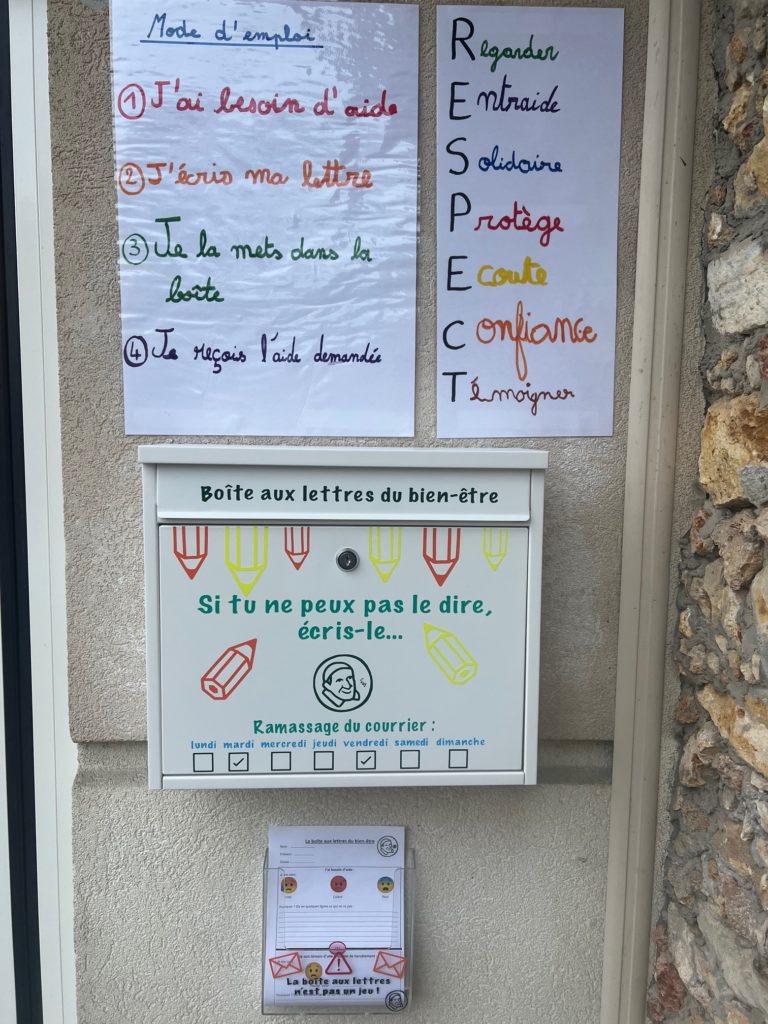 Mode d'emploi
① J'ai besoin d'aide
② J'écris ma lettre
③ Je la mets dans la
boîte
④ Je reçois l'aide demandée
Regarder
Entraide
Solidaire
Protège
Ecoute
Confiance
Témoigner
Boîte aux lettres du bien-être
Si tu ne peux pas le dire,
écris-le...
Ramassage du courrier :
lundi mardi mercredi jeudi vendredi samedi dimanche
La boîte aux lettres du bien-être
J'ai besoin d'aide :
Colère
Peur
La boîte aux lettres
n'est pas un jeu !